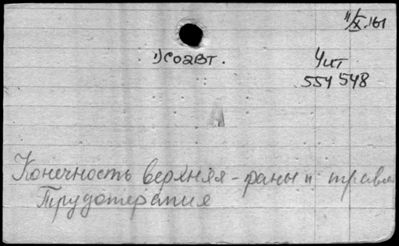 11/X.161
1) соавт.
Чит
554 548
Конечность верхняя - раны и травм
Трудотерапия